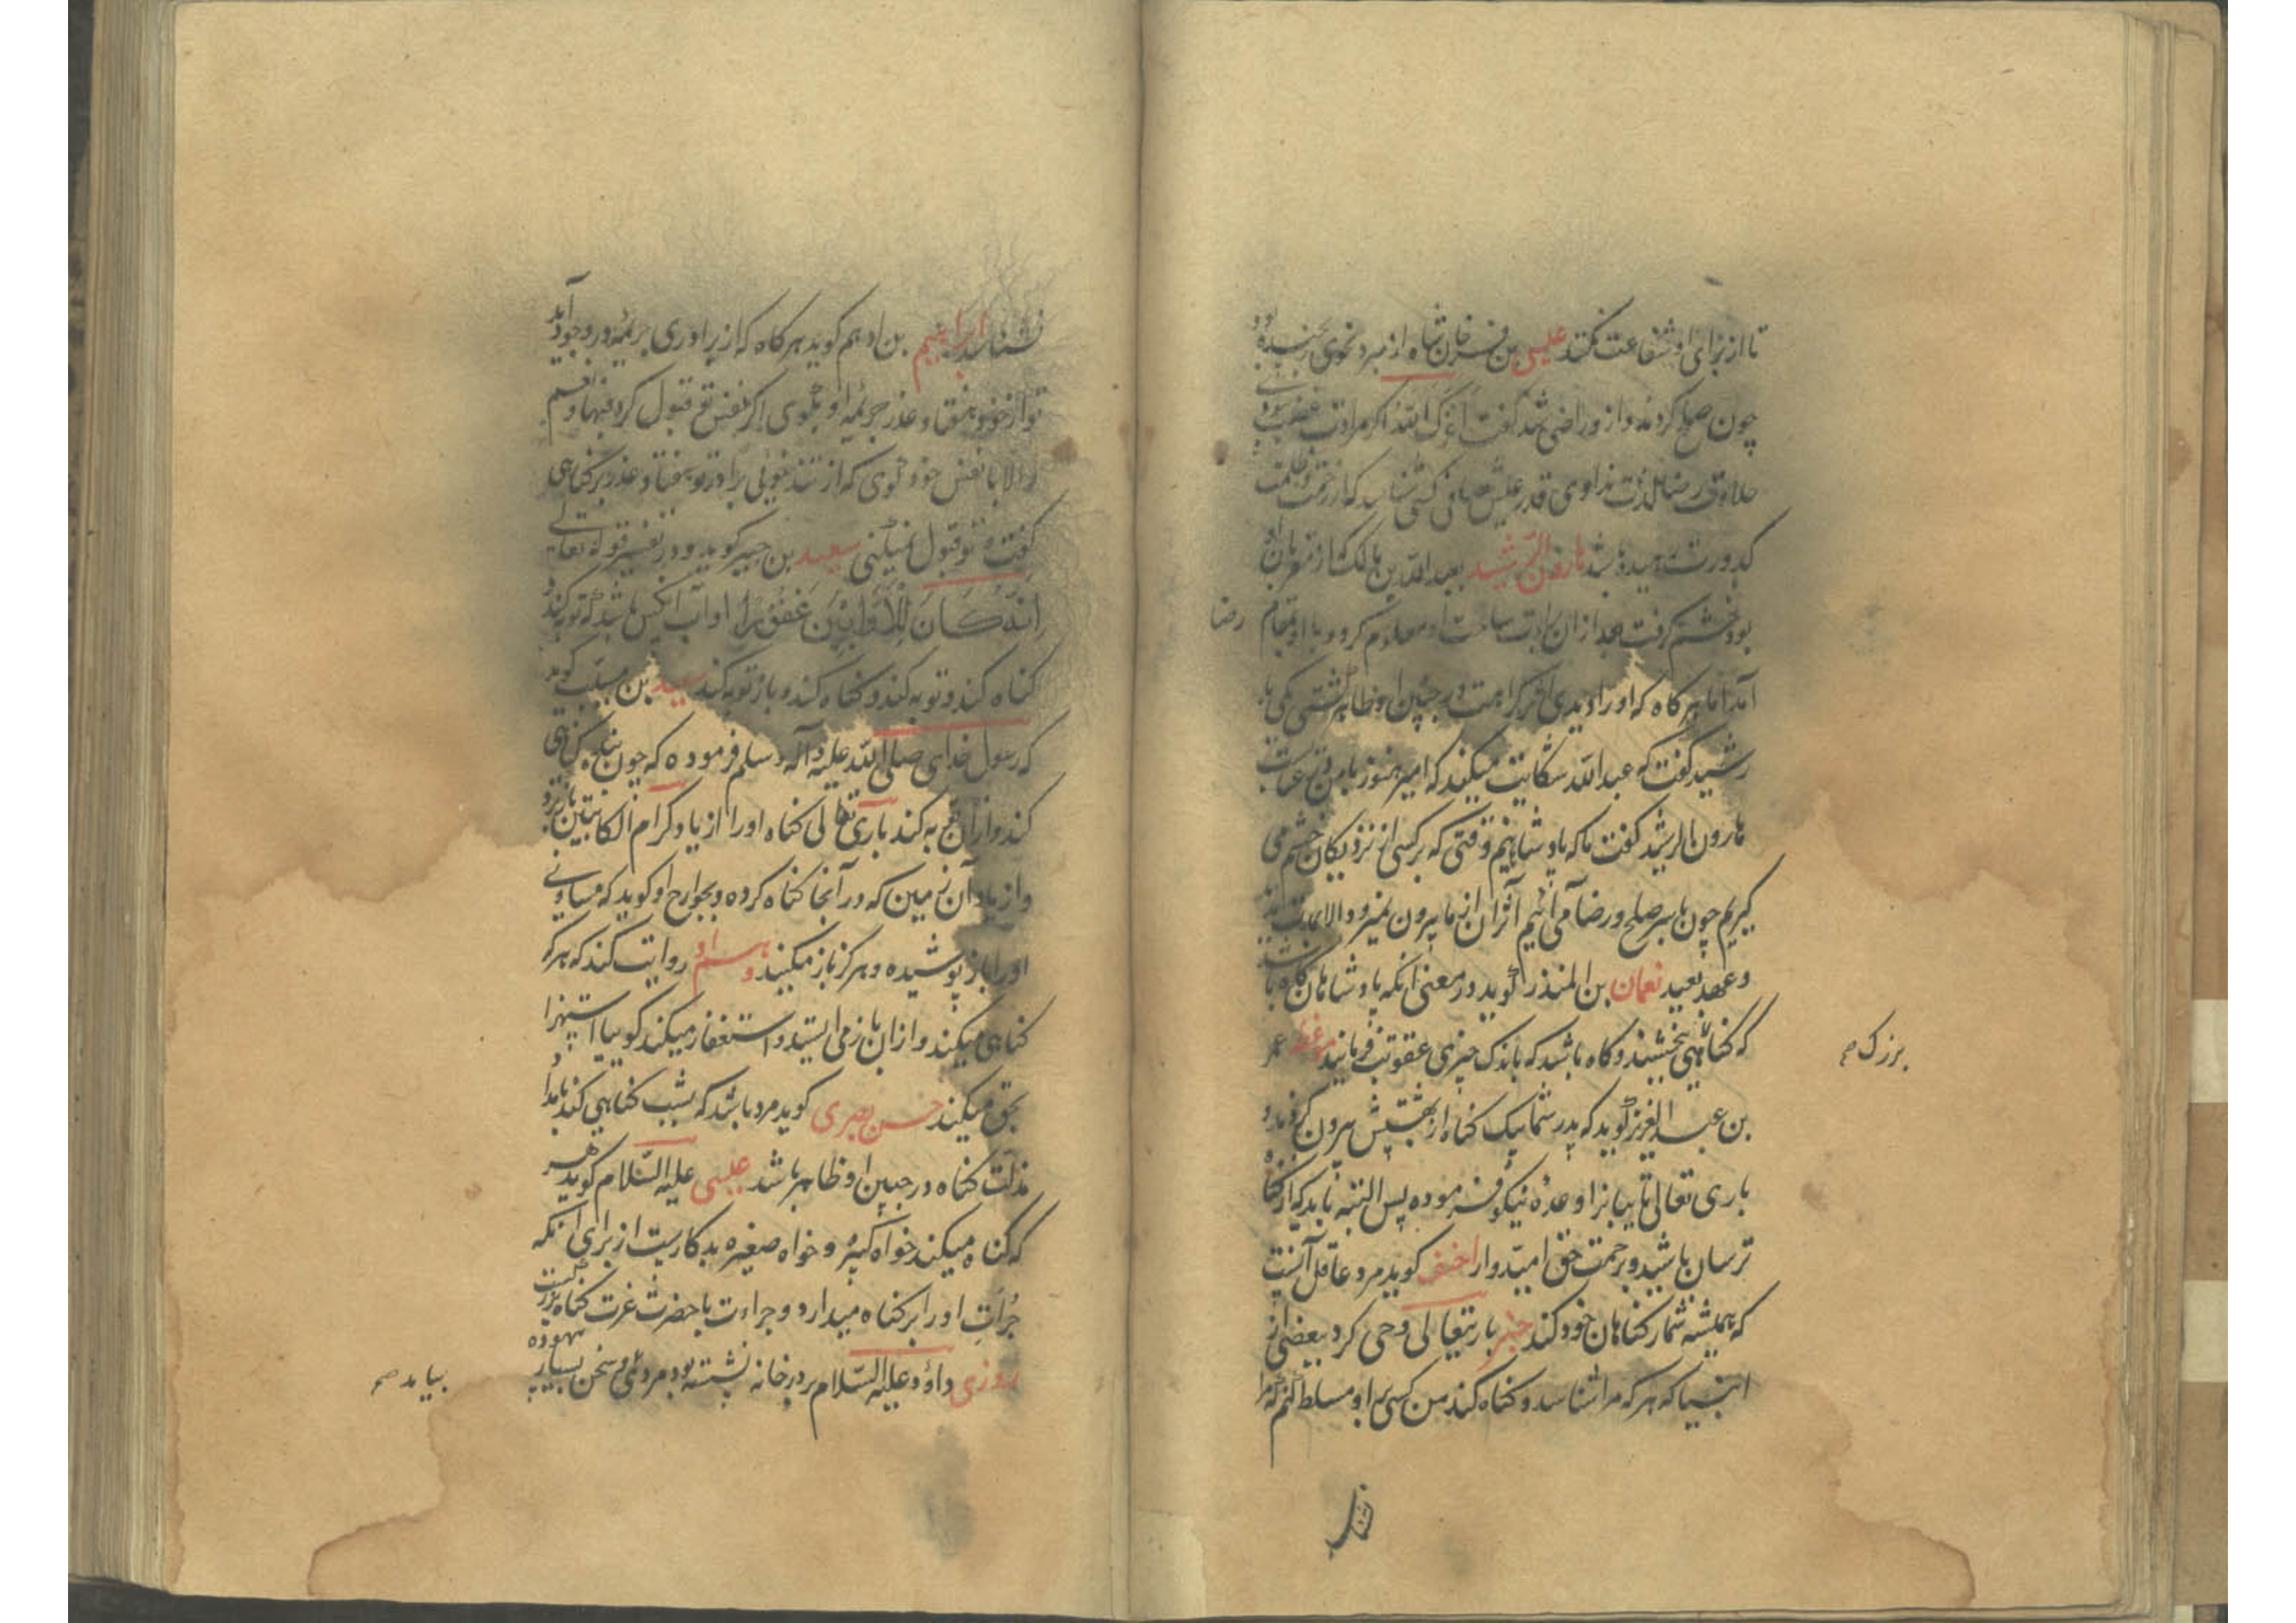 تا از برای او شفاعت کنند عیسی بن فرخان شاه از مبرد نحوی رنجیده بود
چون صلح کردند و از و راضی شد گفت اعزک الله اگر مرادت غضب نبودی
حلاوت رضا لذت ندادی قدر عیش صافی کسی شناسد که از زحمت و ظلمت
کدورت رهیده باشد هارون الرشید بعبد الله بن مالک که از مقربان او
بود خشم گرفت بعد از ان برات ساحت او معلوم کرد و با او بمقام
رضا
آمد اما هر گاه که او را دیدی اثر کراهت در جبین او ظاهر گشتی یکی با
رشید گفت که عبد الله شکایت میکند که امیر هنوز با من در عتاب
هارون الرشید گفت ما که پادشاهیم وقتی که بر کسی از نزدیکان خشم می
گیریم چون باسر صلح و رضا می آئیم اثر ان از ما بیرون نمیرود الا بمدت
و عهد بعید نعمان بن المنذر گوید در معنی انکه پادشاهان گاه باشد
که گناهی بخشند و گاه باشد که باندک چیزی عقوبت فرمایند عمر
بزرگ صح
بن عبد العزیز گوید که پدر شما بیک گناه از بهشتش بیرون کردند و
باری تعالی تایبانرا وعده نیکو فرموده پس البته باید که از گناه
ترسان باشید و برحمت حق امیدوار احنف گوید مرد عاقل آنست
که همیشه شمار گناهان خود کند خبر باریتعالی وحی کرد ببعضی از
انبیا که هر که مرا شناسد و گناه کند من کسی بر او مسلط کنم که مرا
نشناسد ابراهیم بن ادهم گوید هر گاه که از برادری جریمه در وجود آید
تو از خود هفتاد عذر جریمه او بگوی اگر نفس تو قبول کرد فبها و نعم
و الا با نفس خود گوی که از تندخوئی برادر تو هفتاد عذر بر گناهی
گفت و تو قبول نمیکنی سعید بن جبیر گوید در تفسیر قوله تعالی
انه کان للاوابین غفورا اواب آنکس باشد که توبه کند و
گناه کند و توبه کند و گناه کند و باز توبه کند سعید بن مسیب گوید
که رسول خدای صلی الله علیه و آله و سلم فرموده که چون بنده گناهی
کند و از ان توبه کند باری تعالی گناه او را از یاد کرام الکاتبین ببرد
و از یاد آن زمین که در آنجا گناه کرده و بجوارح او گوید که مساوی
او را باز پوشیده و هرگز باز مکنید و روایت کند که هر که
گناهی میکند و از ان باز می ایستد و استغفار میکند گوییا استهزا
بحق میکند حسن بصری گوید مرد باشد که بشب گناهی کند بامداد
مذلت گناه در جبین او ظاهر باشد عیسی علیه السلام گوید هر
که گناه میکند خواه کبیره و خواه صغیره بد کاریست از برای انکه
جرات او را بر گناه میدارد و جراءت با حضرت عزت گناه بزرگست
روزی داؤد علیه السلام بر در خانه نشسته بود مردی و سخن بسیار بیهوده
بیامد صح